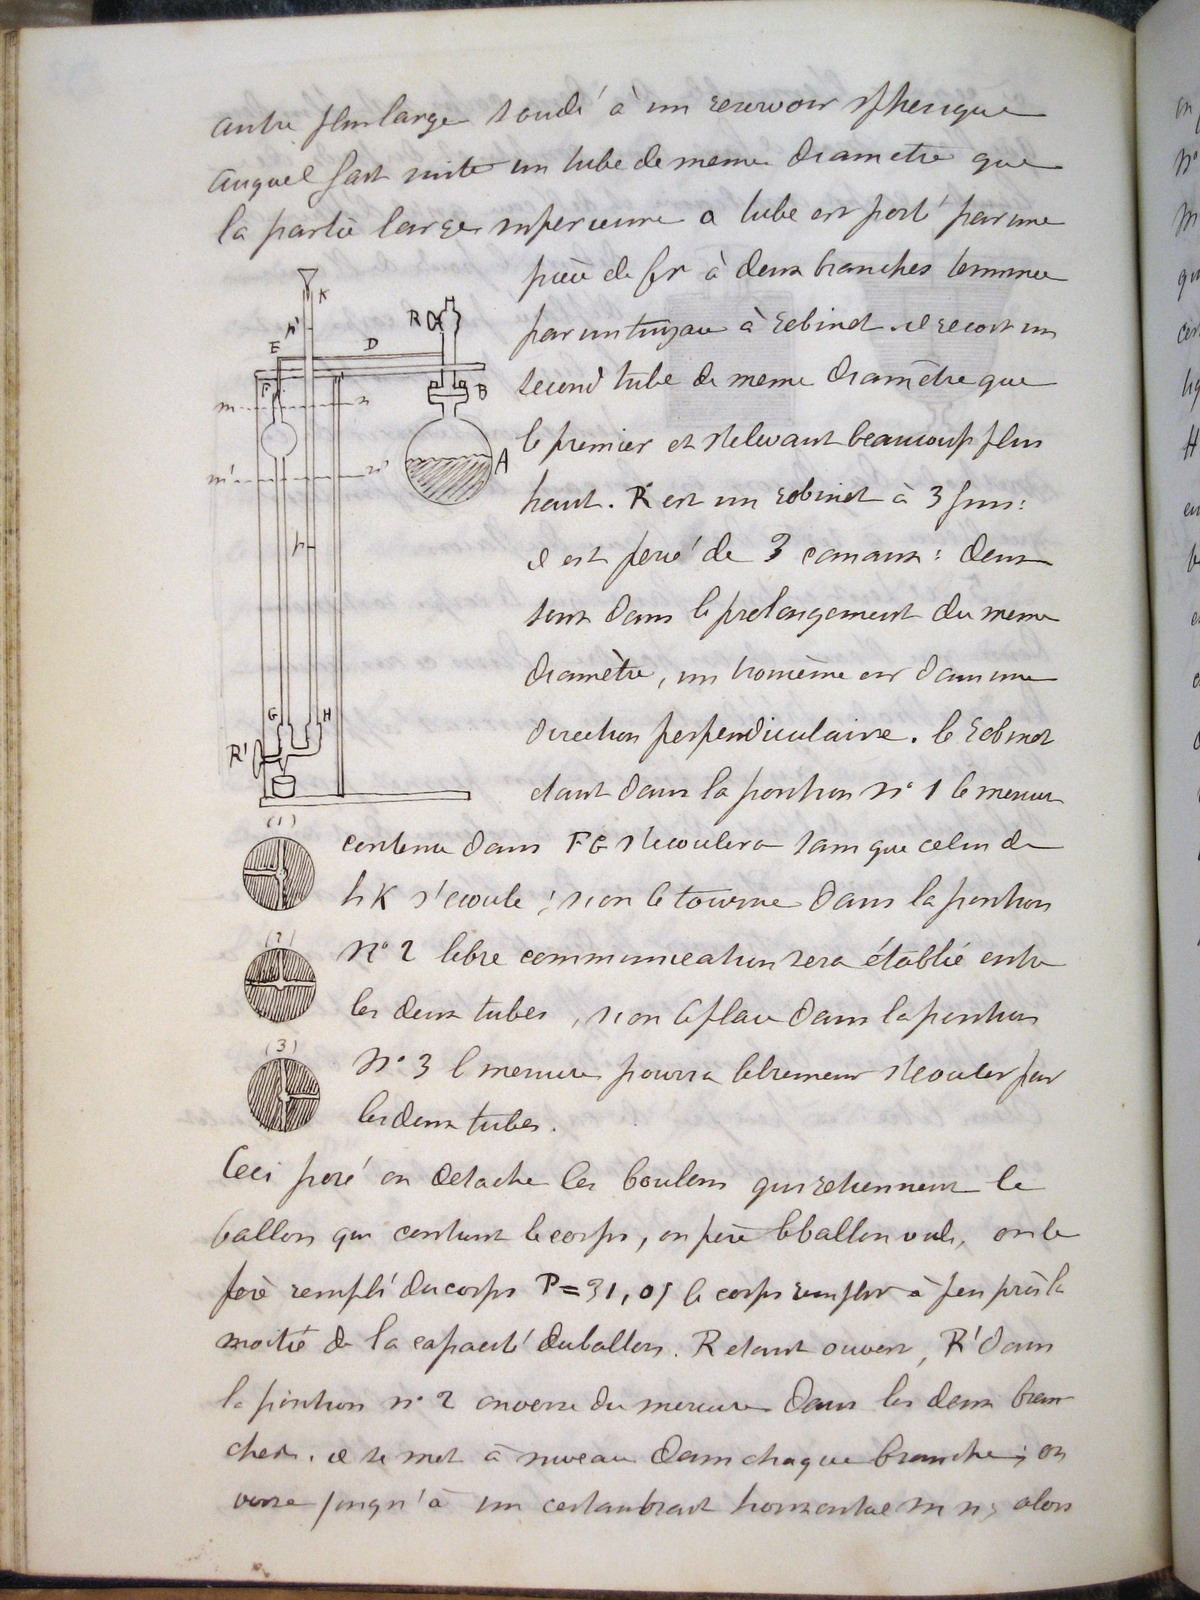 autre plus large soudé à un reservoir spherique
auquel fait suite un tube de meme diametre que
la partie large superieure a tube est porté par une
pièce de fer à deux branches terminee
par un tuyau à robinet. il recoit un
second tube de meme diamètre que
le premier et s'elevant beaucoup plus
haut. R' est un robinet à 3 fins:
il est percé de 3 canaux: deux
sont dans le prolongement du meme
diamètre, un troisième est dans une
direction perpendiculaire. le robinet
etant dans la position n° 1 le mercure
K
h'
R
E
D
F
B
m
n
A
m'
n'
h
G
H
R'
(1)
contenu dans FG s'ecoulera sans que celui de
hK s'ecoule; si on le tourne dans la position
(2)
n° 2 libre communication sera établie entre
les deux tubes, si on le place dans la position
(3)
n° 3 le mercure pourra librement s'ecouler par
les deux tubes.
Ceci posé on detache les boulons qui retiennent le
ballon qui contient le corps, on pèse le ballon vide, on le
pèse rempli du corps P=31,05 le corps remplit à peu près la
moitié de la capacité du ballon. R etant ouvert, R' dans
la position n° 2 on verse du mercure dans les deux bran
ches. il se met à niveau dans chaque branche; on
verse jusqu'à un certain trait horizontal m n; alors